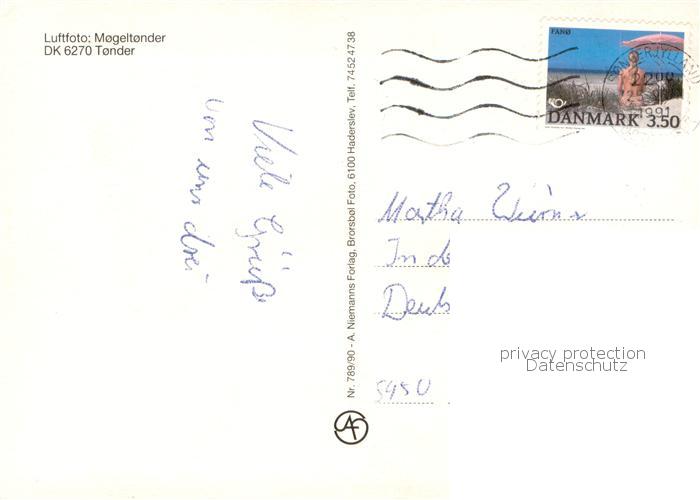 Luftfoto: Møgeltønder
DK 6270 Tønder
Viele Grüße
von uns drei
Nr. 789/90 - A. Niemanns Forlag, Brorsbøl Foto, 6100 Haderslev, Telf. 7452 4738
FANØ
DANMARK 3.50
SØNDERJYLLAND
1991
Martha
In d
Deuts
5450
privacy protection
Datenschutz